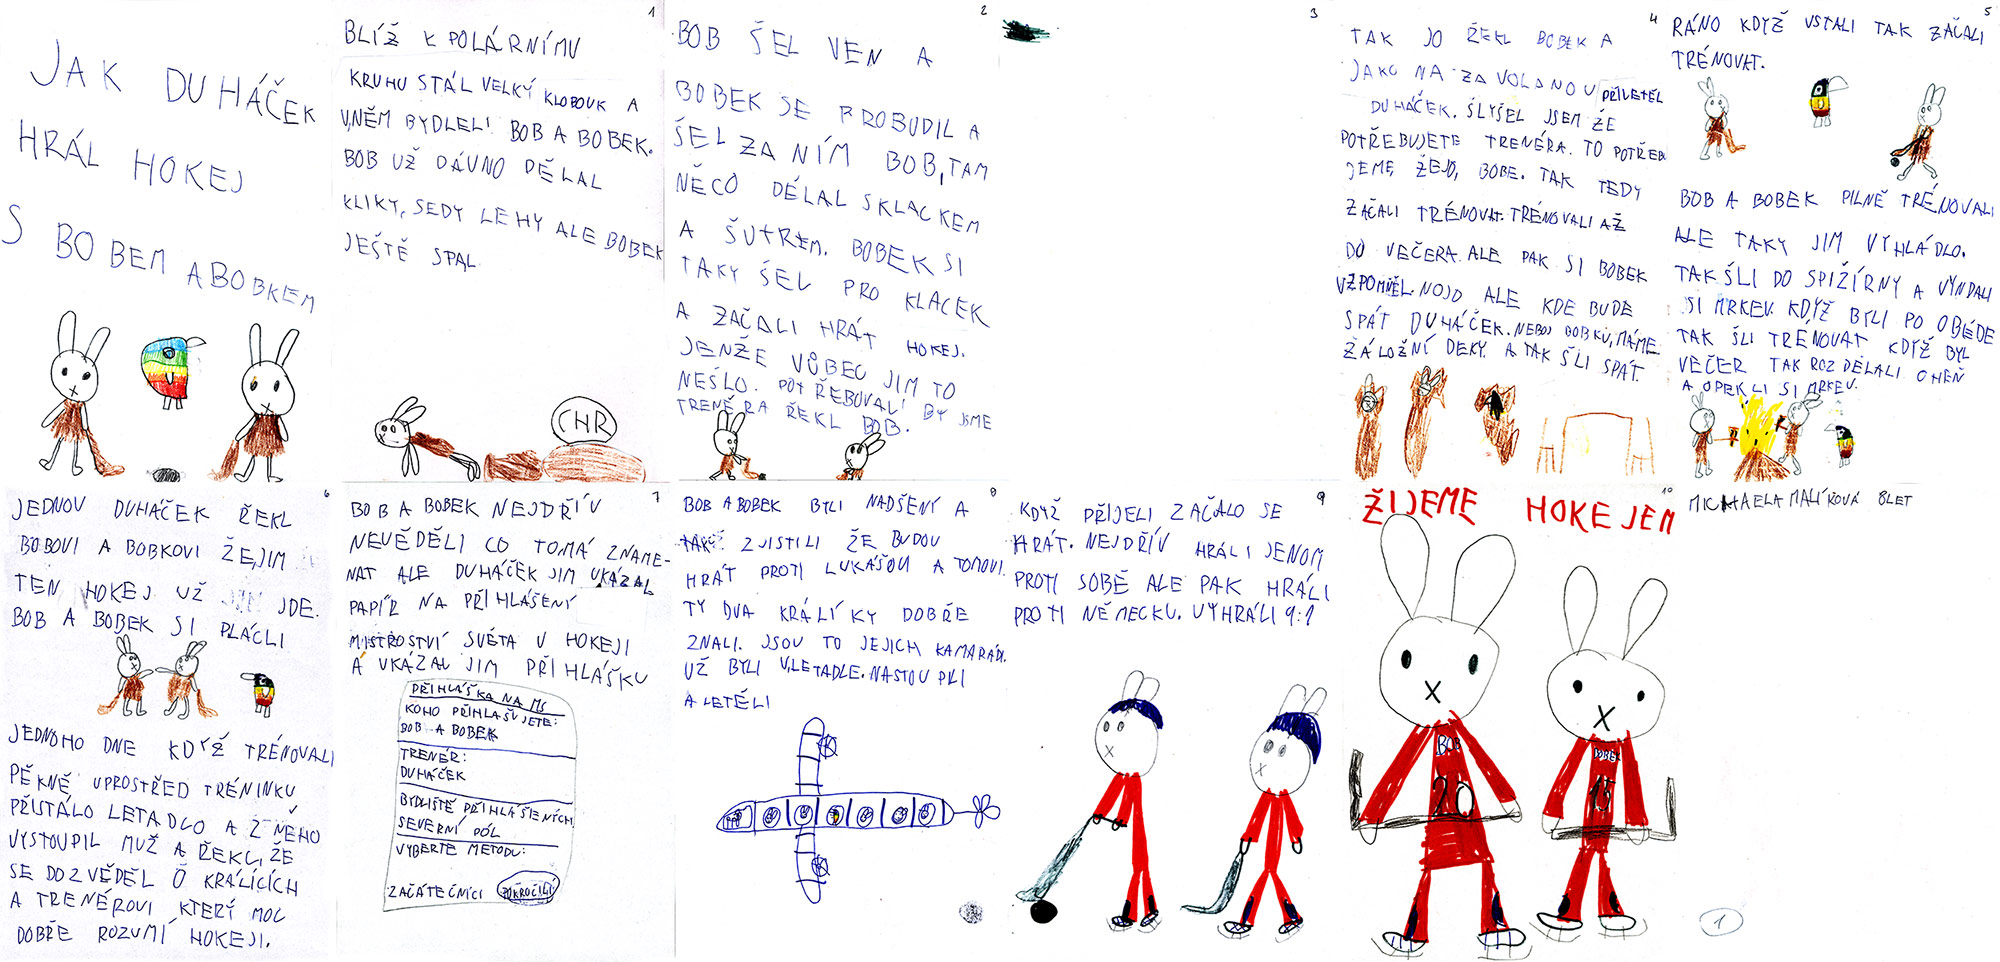 JAK DUHÁČEK
HRÁL HOKEJ
S BOBEM A BOBKEM
1
BLÍŽ K POLÁRNÍMU
KRUHU STÁL VELKÝ KLOBOUK A
V NĚM BYDLELI BOB A BOBEK.
BOB UŽ DÁVNO DĚLAL
KLIKY, SEDY LEHY ALE BOBEK
JEŠTĚ SPAL.
CHR
2
BOB ŠEL VEN A
BOBEK SE PROBUDIL A
ŠEL ZA NÍM BOB, TAM
NĚCO DĚLAL S KLACKEM
A ŠUTREM. BOBEK SI
TAKY ŠEL PRO KLACEK
A ZAČALI HRÁT HOKEJ.
JENŽE VŮBEC JIM TO
NEŠLO. POTŘEBOVALI BY JSME
TRENÉRA ŘEKL BOB.
3
4
TAK JO ŘEKL BOBEK A
JAKO NA ZAVOLANOU PŘILETĚL
DUHÁČEK. SLYŠEL JSEM ŽE
POTŘEBUJETE TRENÉRA. TO POTŘEB
JEME, ŽEJO, BOBE. TAK TEDY
ZAČALI TRÉNOVAT. TRÉNOVALI AŽ
DO VEČERA. ALE PAK SI BOBEK
VZPOMNĚL. NOJO ALE KDE BUDE
SPÁT DUHÁČEK. NEBOJ BOBKU, MÁME
ZÁLOŽNÍ DEKY. A TAK ŠLI SPÁT.
5
RÁNO KDYŽ VSTALI TAK ZAČALI
TRÉNOVAT.
BOB A BOBEK PILNĚ TRÉNOVALI
ALE TAKY JIM VYHLÁDLO.
TAK ŠLI DO SPIŽÍRNY A VYNDALI
SI MRKEV. KDYŽ BYLI PO OBĚDE
TAK ŠLI TRÉNOVAT KDYŽ BYL
VEČER TAK ROZDĚLALI OHEŇ
A OPEKLI SI MRKEV.
6
JEDNOU DUHÁČEK ŘEKL
BOBOVI A BOBKOVI ŽE JIM
TEN HOKEJ UŽ JDE.
BOB A BOBEK SI PLÁCLI
JEDNOHO DNE KDYŽ TRÉNOVALI
PĚKNĚ UPROSTŘED TRÉNINKU
PŘISTÁLO LETADLO A Z NĚHO
VYSTOUPIL MUŽ A ŘEKL, ŽE
SE DOZVĚDĚL O KRÁLÍCÍCH
A TRENÉROVI KTERÝ MOC
DOBŘE ROZUMÍ HOKEJI.
7
BOB A BOBEK NEJDŘÍV
NEVĚDĚLI CO TO MÁ ZNAME-
NAT ALE DUHÁČEK JIM UKÁZAL
PAPÍR NA PŘIHLÁŠENÍ
MISTROSTVÍ SVĚTA V HOKEJI
A UKÁZAL JIM PŘIHLÁŠKU
PŘIHLÁŠKA NA MS
KOHO PŘIHLAŠUJETE:
BOB A BOBEK
TRENÉR:
DUHÁČEK
BYDLIŠTĚ PŘIHLÁŠENÝCH
SEVERNÍ PÓL
VYBERTE METODU:
ZAČÁTEČNÍCI POKROČILÍ
8
BOB A BOBEK BYLI NADŠENÍ A
TAKÉ ZJISTILI ŽE BUDOU
HRÁT PROTI LUKÁŠOVI A TOMOVI.
TY DVA KRÁLÍKY DOBŘE
ZNALI. JSOU TO JEJICH KAMARÁDI.
UŽ BYLI V LETADLE. NASTOUPILI
A LETĚLI
9
KDYŽ PŘIJELI ZAČALO SE
HRÁT. NEJDŘÍV HRÁLI JENOM
PROTI SOBĚ ALE PAK HRÁLI
PROTI NĚMECKU. VYHRÁLI 9:1
10
ŽIJEME HOKEJEM
BOB
20
BOBEK
15
MICHAELA MALÍKOVÁ 8LET
1